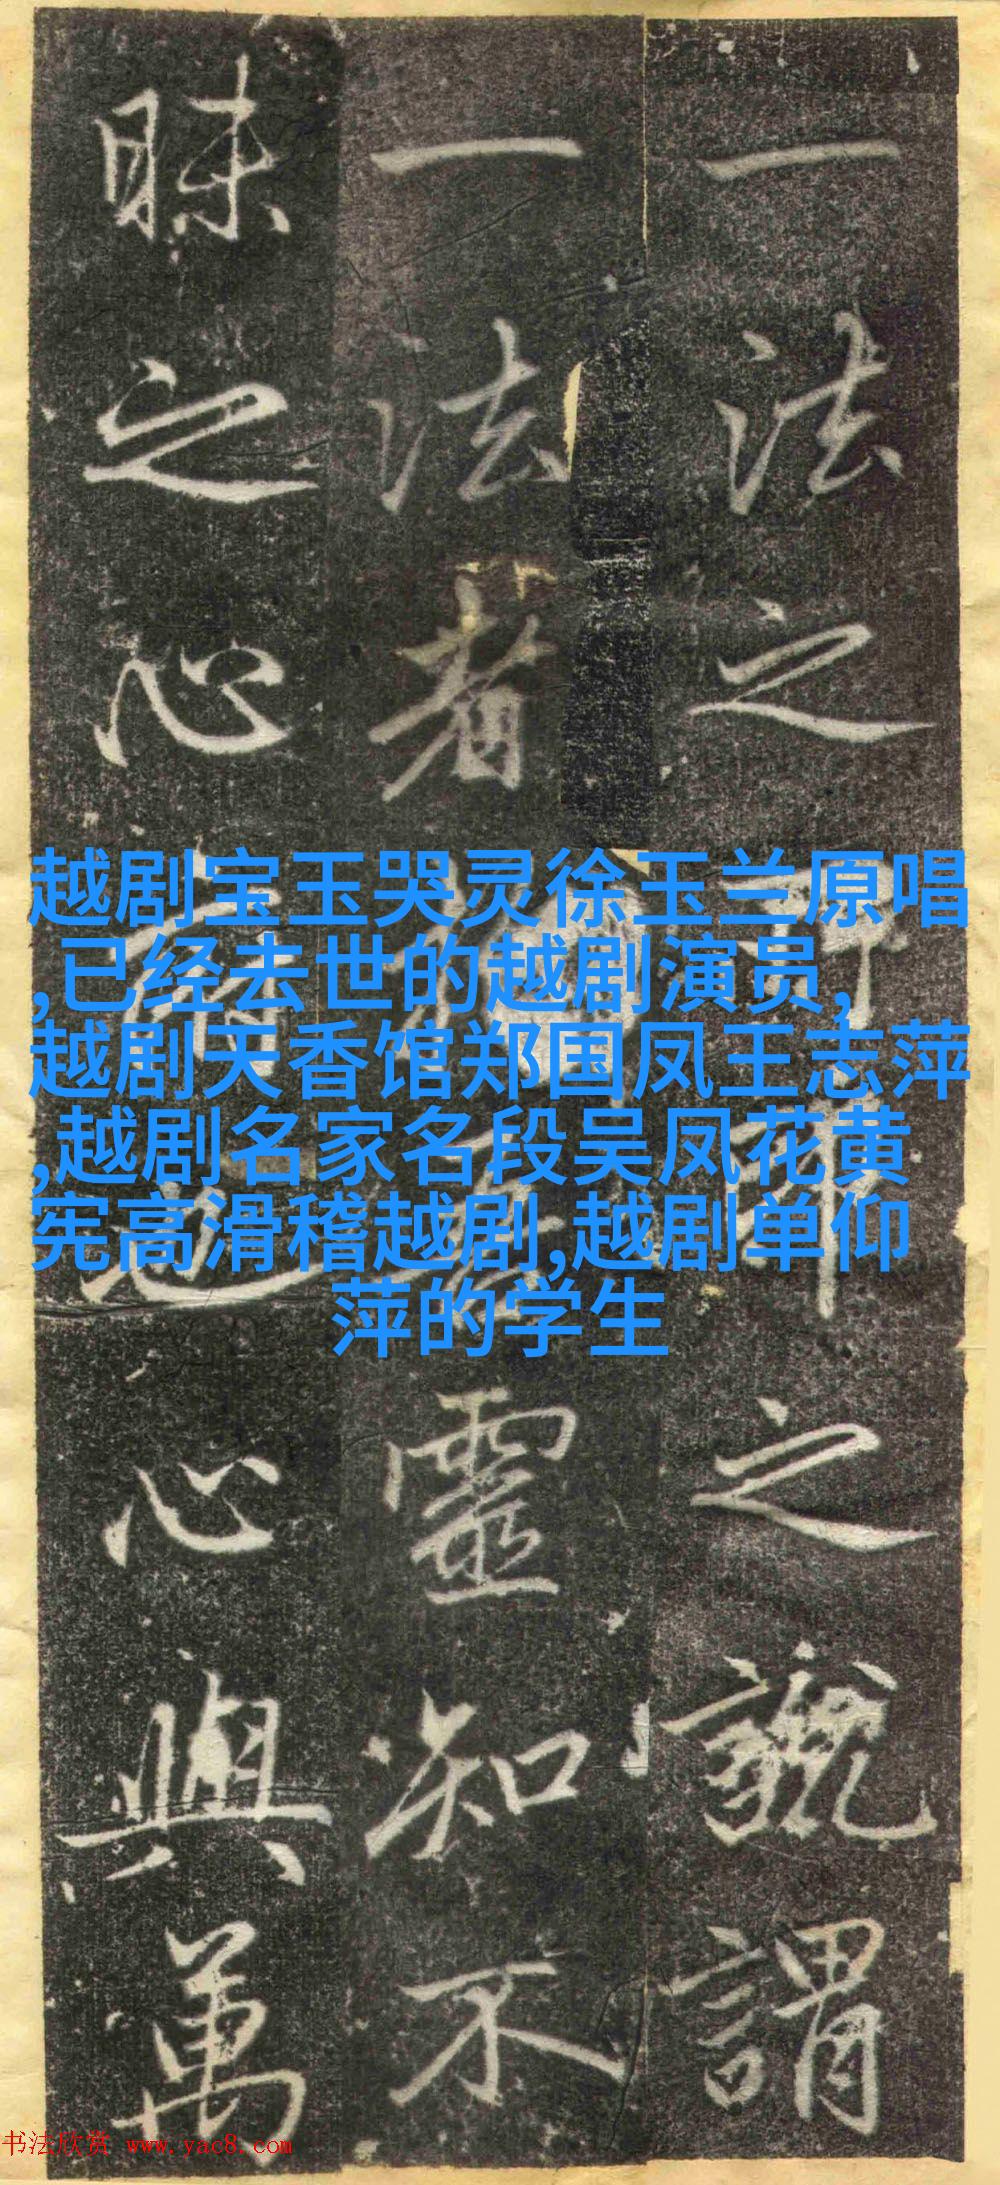 一法之之說謂
一法者靈知不
昧之心也心與萬
越剧宝玉哭灵徐玉兰原唱
,已经去世的越剧演员,
越剧天香馆郑国凤王志萍
,越剧名家名段吴凤花黄
宪高滑稽越剧,越剧单仰
萍的学生
书法欣赏 www.yac8.com